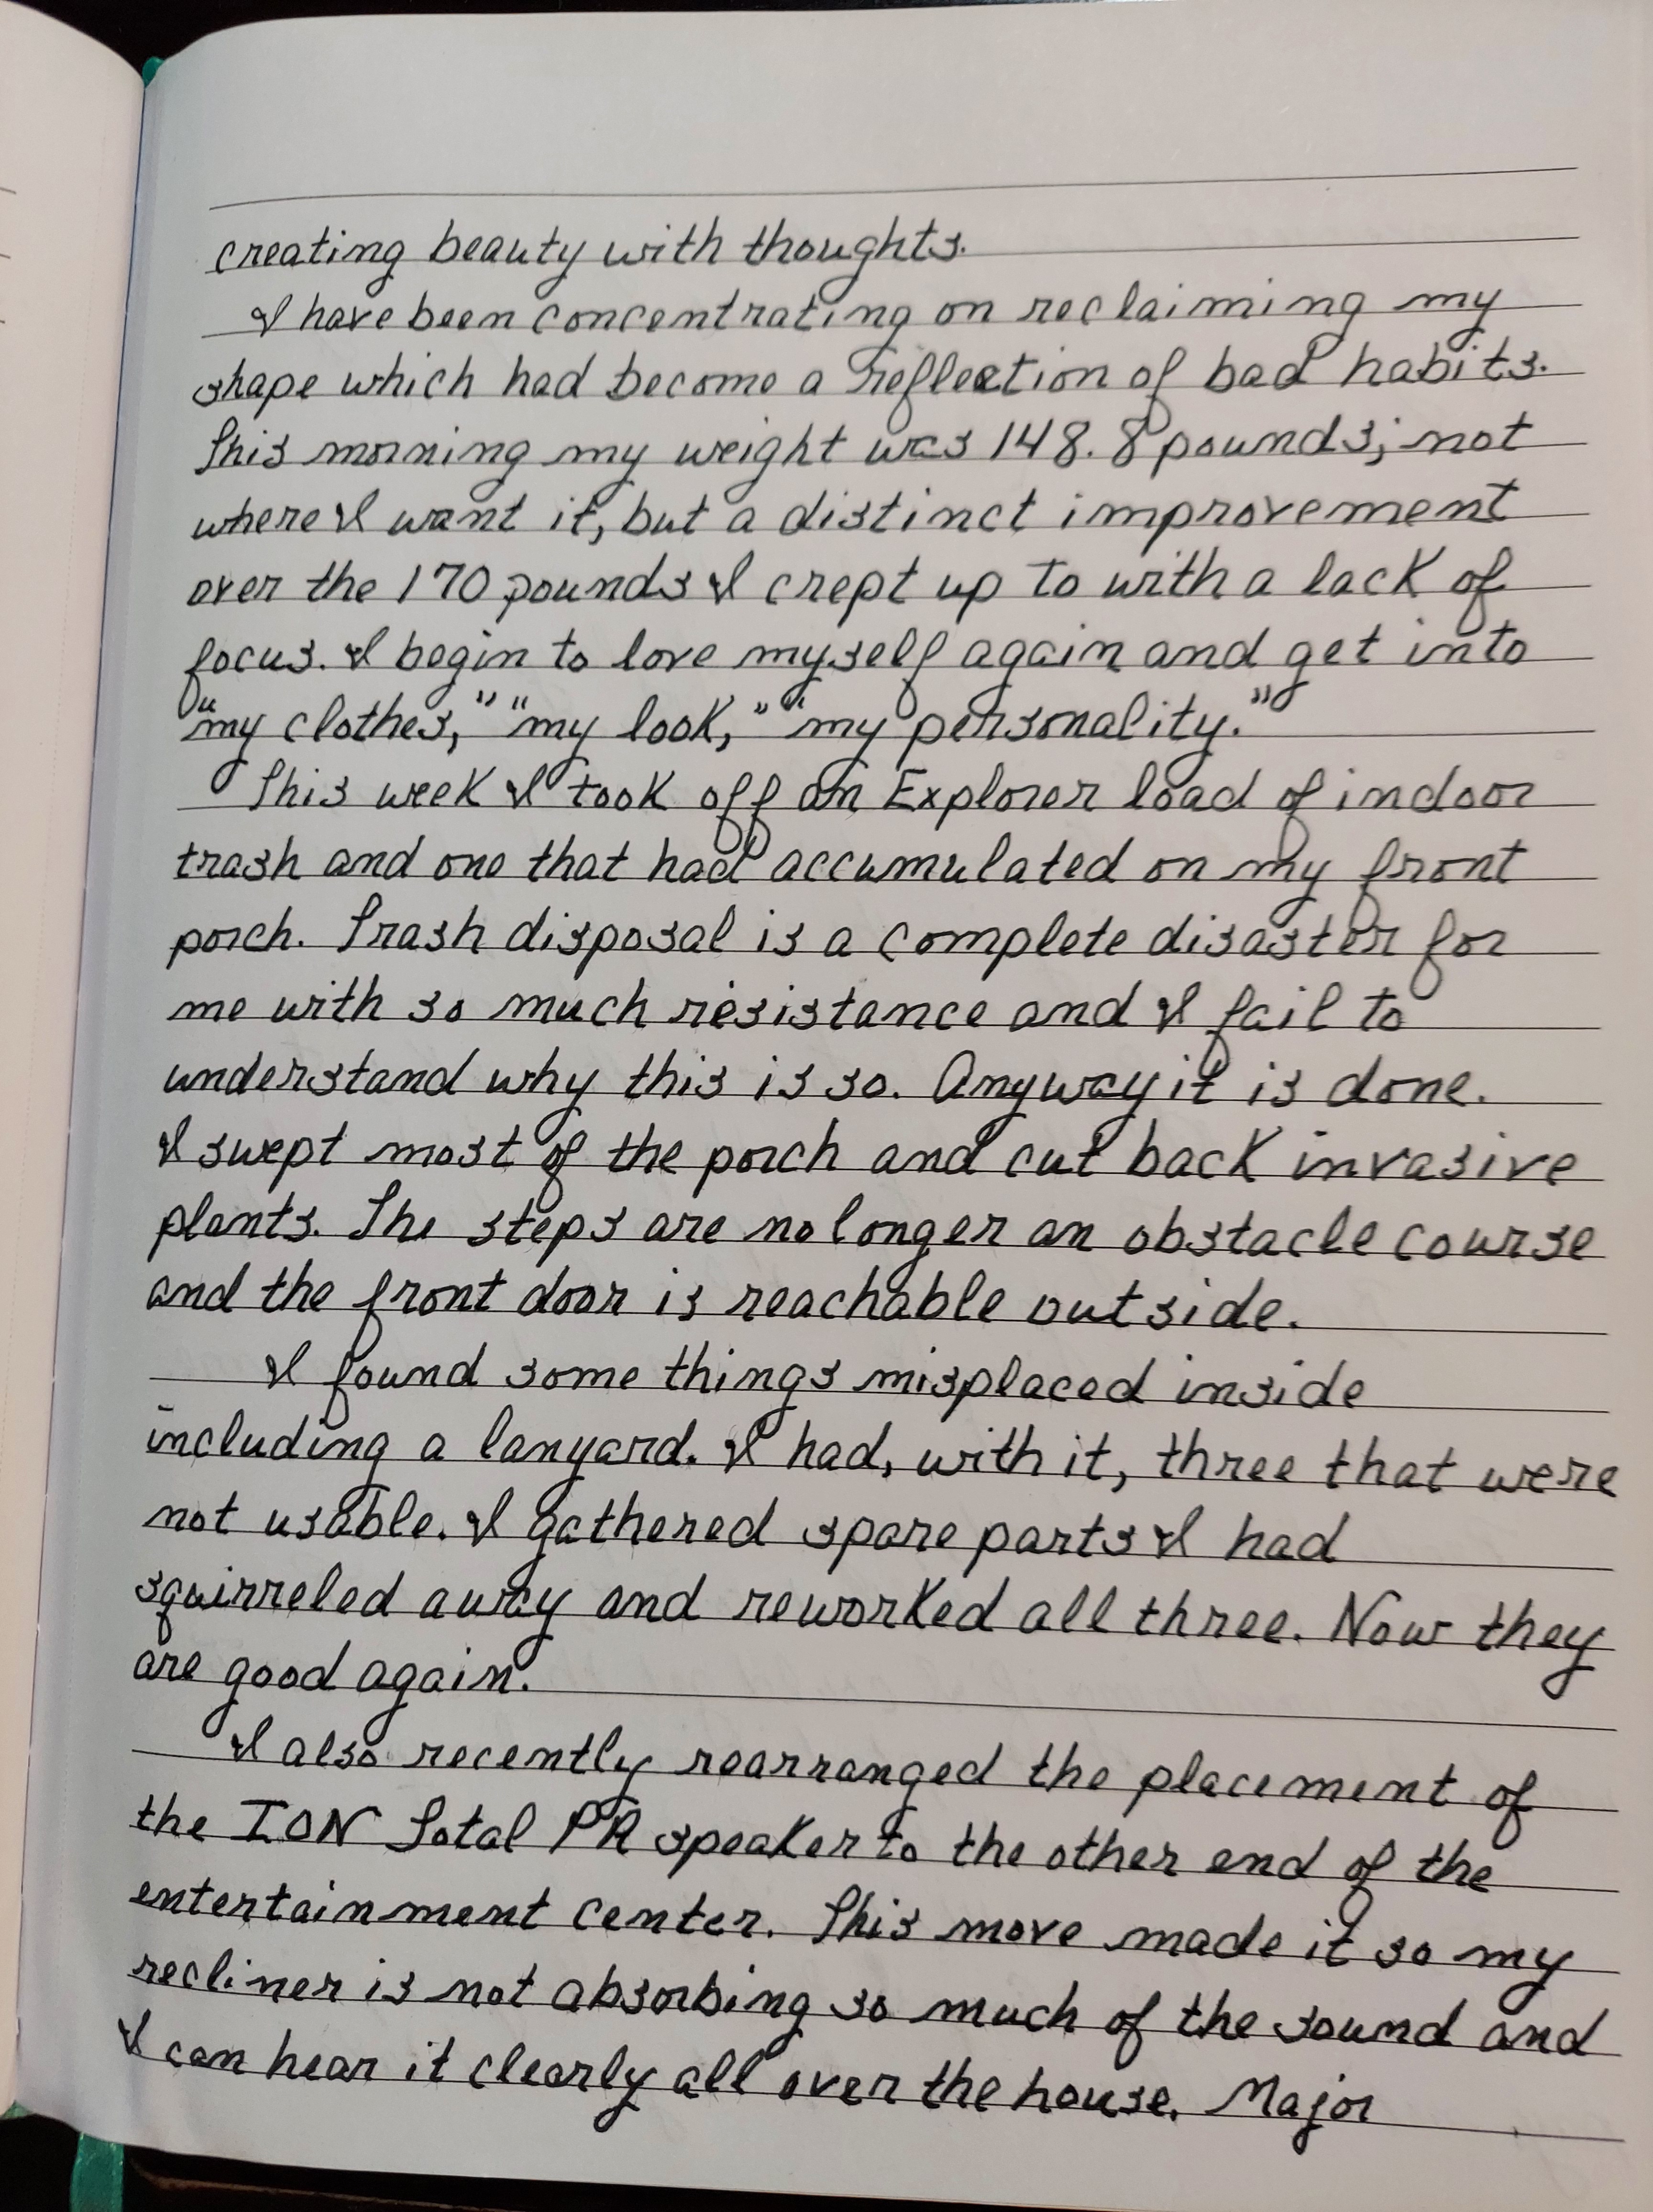 creating beauty with thoughts.
I have been concentrating on reclaiming my
shape which had become a reflection of bad habits.
This morning my weight was 148.8 pounds; not
where I want it, but a distinct improvement
over the 170 pounds I crept up to with a lack of
focus. I begin to love myself again and get into
"my clothes," "my look," "my personality."
This week I took off an Explorer load of indoor
trash and one that had accumulated on my front
porch. Trash disposal is a complete disaster for
me with so much resistance and I fail to
understand why this is so. Anyway it is done.
I swept most of the porch and cut back invasive
plants. The steps are no longer an obstacle course
and the front door is reachable outside.
I found some things misplaced inside
including a lanyard. I had, with it, three that were
not usable. I gathered spare parts I had
squirreled away and reworked all three. Now they
are good again.
I also recently rearranged the placement of
the ION Total PA speaker to the other end of the
entertainment center. This move made it so my
recliner is not absorbing so much of the sound and
I can hear it clearly all over the house. Major